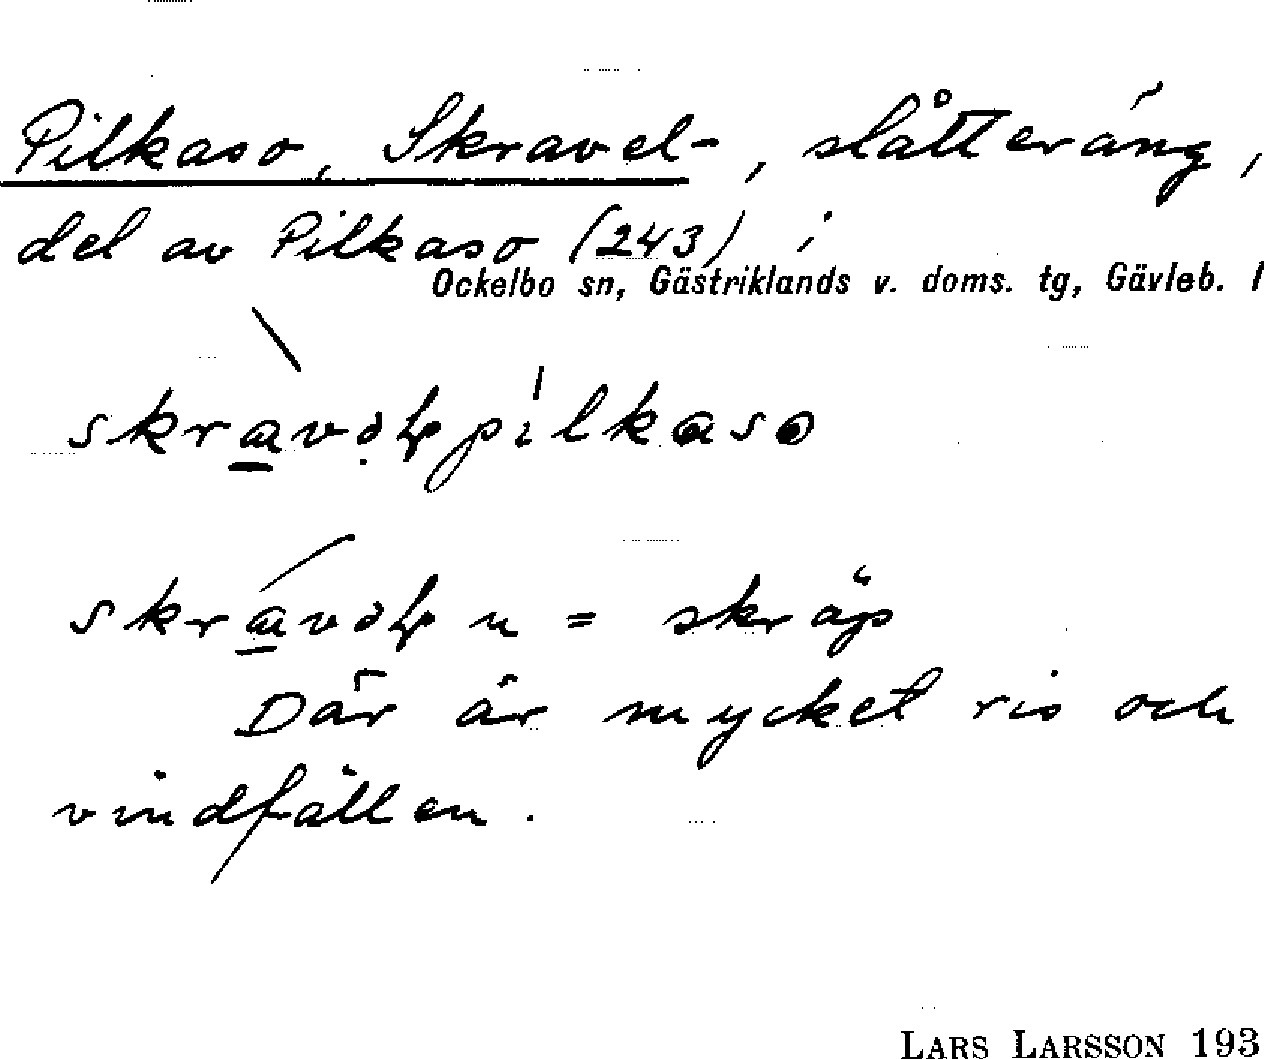 Pilkaso, Skravel-, slåtteräng,
del av Pilkaso (243) i
Ockelbo sn, Gästriklands v. doms. tg, Gävleb. l
= skräp
Där är mycket ris och
vindfällen.
LARS LARSSON 193